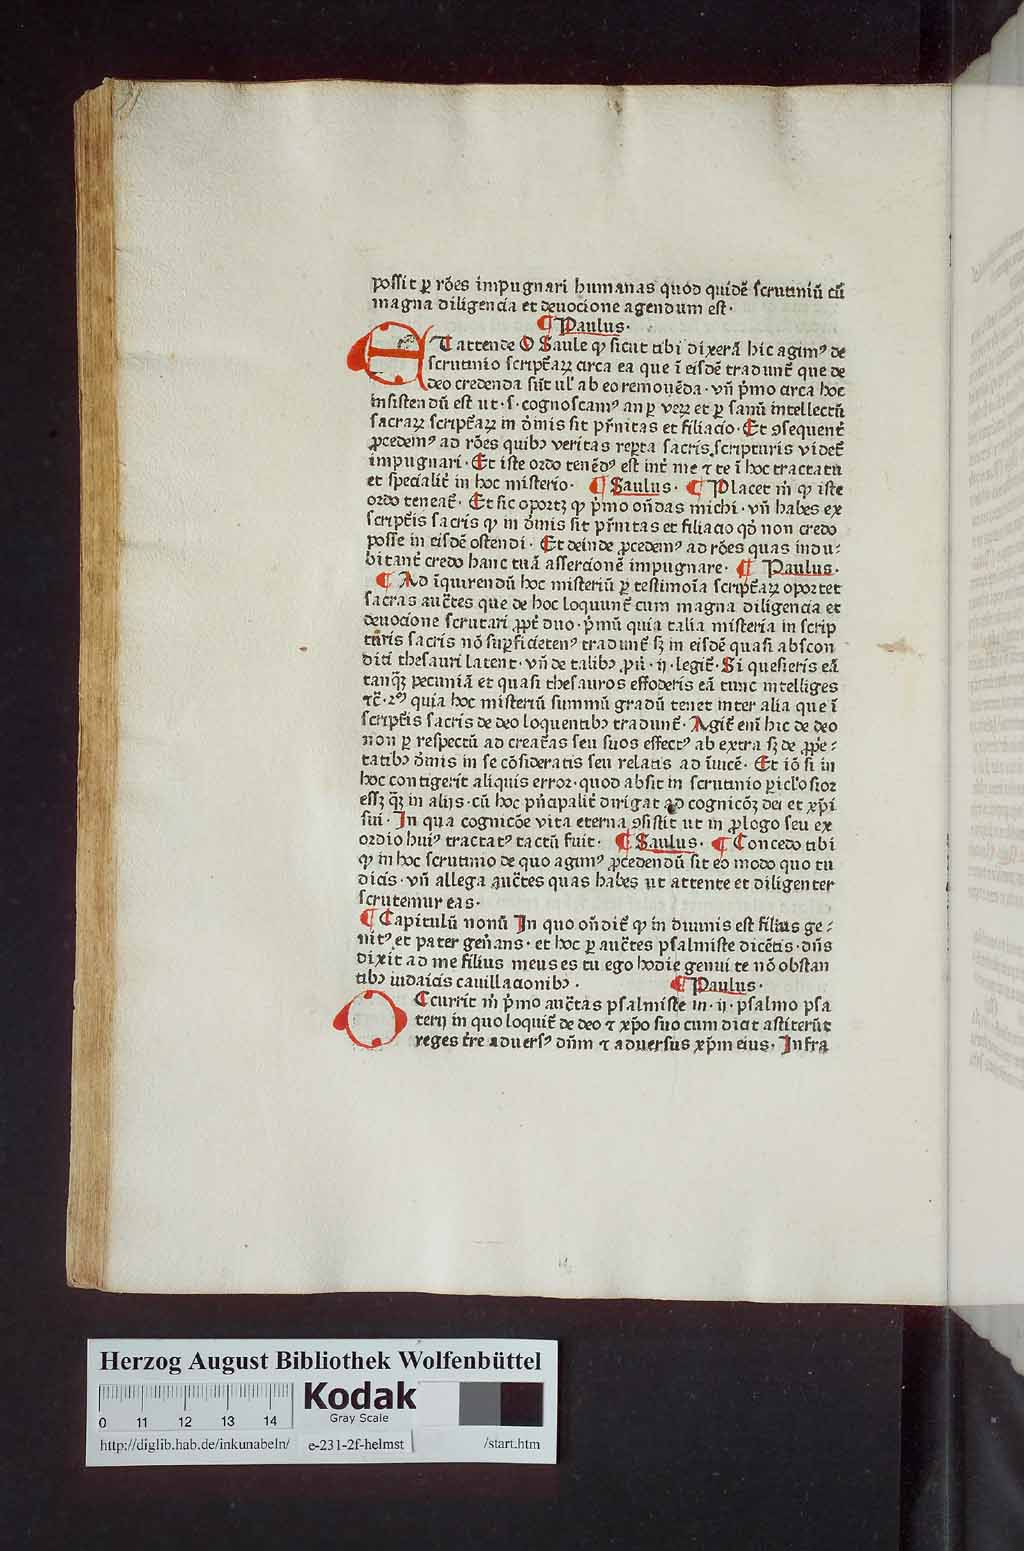 possit ꝑ rōes impugnari humanas quod quidē scrutiniū cū
magna diligencia et deuocione agendum est·
¶ Paulus·
ET attende O Saule ꝙ sicut tibi dixerā hic agimꝰ de
scrutinio script̄aꝝ circa ea que ī eisdē tradunt̄ que de
deo credenda sūt ul' ab eo remouēda· vn̄ p̄mo circa hoc
insistendū est ut· s· cognoscamꝰ an ꝑ veꝝ et ꝑ sanū intellectū
sacraꝝ script̄aꝝ in d̄inis sit pr̄nitas et filiacio· Et ꝯsequent̄
ꝓcedemꝰ ad rōes quibꝫ veritas reꝑta sacris scripturis videt̄
impugnari· Et iste ordo tenēdꝰ est int̄ me ⁊ te ī hoc tractatu
et specialit̄ in hoc misterio· ¶ Saulus· ¶ Placet m̄ ꝙ iste
ordo teneat̄· Et sic oportꝫ ꝙ p̄mo on̄das michi· vn̄ habes ex
script̄is sacris ꝙ in d̄inis sit pr̄nitas et filiacio qd̄ non credo
posse in eisdē ostendi· Et deinde ꝓcedemꝰ ad rōes quas indu⸗
bitant̄ credo hanc tuā assercionē impugnare· ¶ Paulus·
¶ Ad īquirendū hoc misteriū ꝑ testimoīa script̄aꝝ oportet
sacras auct̄es que de hoc loquunt̄ cum magna diligencia et
deuocione scrutari ꝓpt̄ duo· p̄mū quia talia misteria in scrip
turis sacris nō suꝑficietenꝰ tradunt̄ sꝫ in eisdē quasi abscon
diti thesauri latent· vn̄ de talibꝫ ꝓū· ij· legit̄· Si quesieris eā
tanq̄ꝫ pecuniā et quasi thesauros effoderis eā tunc intelliges
⁊c̄· 2ꝰ quia hoc misteriū summū gradū tenet inter alia que ī
script̄is sacris de deo loquentibꝫ tradunt̄· Agit̄ eni hic de deo
non ꝑ respectū ad creat̄as seu suos effectꝰ ab extra sꝫ de ꝓpe⸗
tatibꝫ d̄inis in se cōsideratis seu relatis ad īuicē· Et iō si in
hoc contigerit aliquis error· quod absit in scrutinio ꝑicl'osior
essꝫ q̄ꝫ in alijs· cū hoc pn̄cipalit̄ dirigat ad cognicōꝫ dei et xp̄i
sui· In qua cognicōe vita eterna ꝯsistit ut in ꝓlogo seu ex
ordio huiꝰ tractatꝰ tactū fuit· ¶ Saulus· ¶ Concedo tibi
ꝙ in hoc scrutinio de quo agimꝰ ꝓcedendū sit eo modo quo tu
dicis· vn̄ allega auct̄es quas habes ut attente et diligenter
scrutemur eas·
¶ Capitulū nonū In quo on̄dit̄ ꝙ in diuinis est filius ge⸗
nitꝰ et pater gen̄ans· et hoc ꝑ auct̄es psalmiste dicētis· dn̄s
dixit ad me filius meus es tu ego hodie genui te nō obstan
tibꝫ iudaicis cauillacionibꝫ· ¶ Paulus·
OCcurrit m̄ p̄mo auct̄as psalmiste in· ij· psalmo psa
terij in quo loquit̄ de deo ⁊ xp̄o suo cum dicit astiterūt
reges t̄re aduersꝰ dn̄m ⁊ aduersus xp̄m eius· Infra
Herzog August Bibliothek Wolfenbüttel
Kodak
Gray Scale
0 11 12 13 14
http://diglib.hab.de/inkunabeln/ e-231-2f-helmst /start.htm